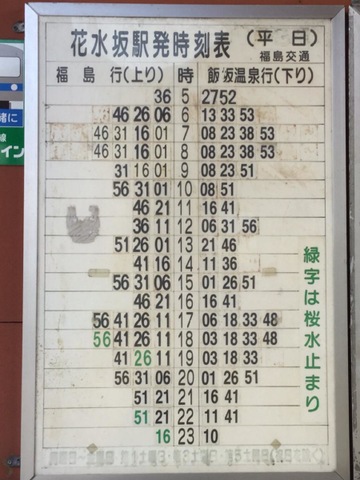 花水坂駅発時刻表 (平日)
福島交通
福島 行(上り) 時 飯坂温泉行(下り)
36 5 27 52
46 26 06 6 13 33 53
46 31 16 01 7 08 23 38 53
46 31 16 01 8 08 23 38 53
31 16 01 9 08 23 51
56 31 01 10 08 51
46 21 11 16 41
36 11 12 06 31 56
51 26 01 13 21 46
41 16 14 11 36
56 31 06 15 01 26 51
46 21 16 16 41
56 41 26 11 17 06 18 33 48
56 41 26 11 18 03 18 33 48
41 26 11 19 03 18 33
56 31 06 20 01 26 51
51 21 21 16 41
51 21 22 11 41
16 23 10
緑字は桜水止まり
緒に
線
イン